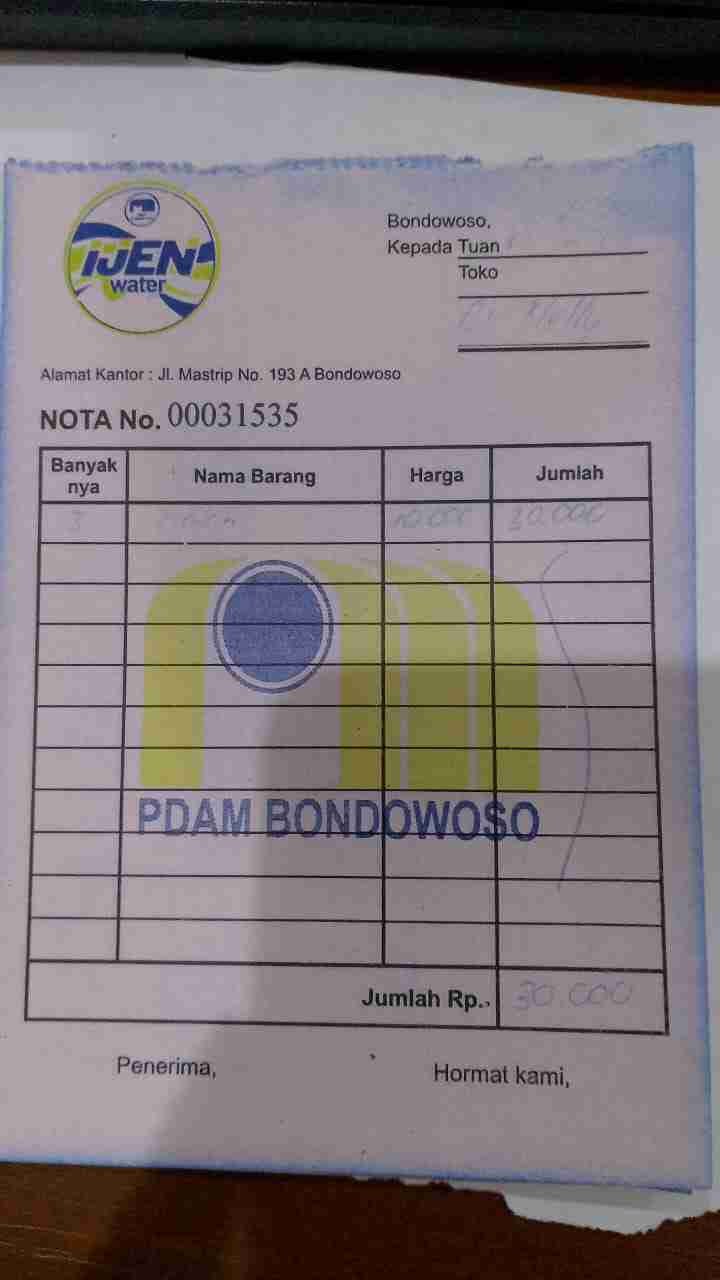 IJEN
water
Bondowoso,
Kepada Tuan
Toko
Alamat Kantor : Jl. Mastrip No. 193 A Bondowoso
NOTA No. 00031535
Banyak nya Nama Barang Harga Jumlah
3 10.000 30.000
PDAM BONDOWOSO
Jumlah Rp. 30.000
Penerima, Hormat kami,